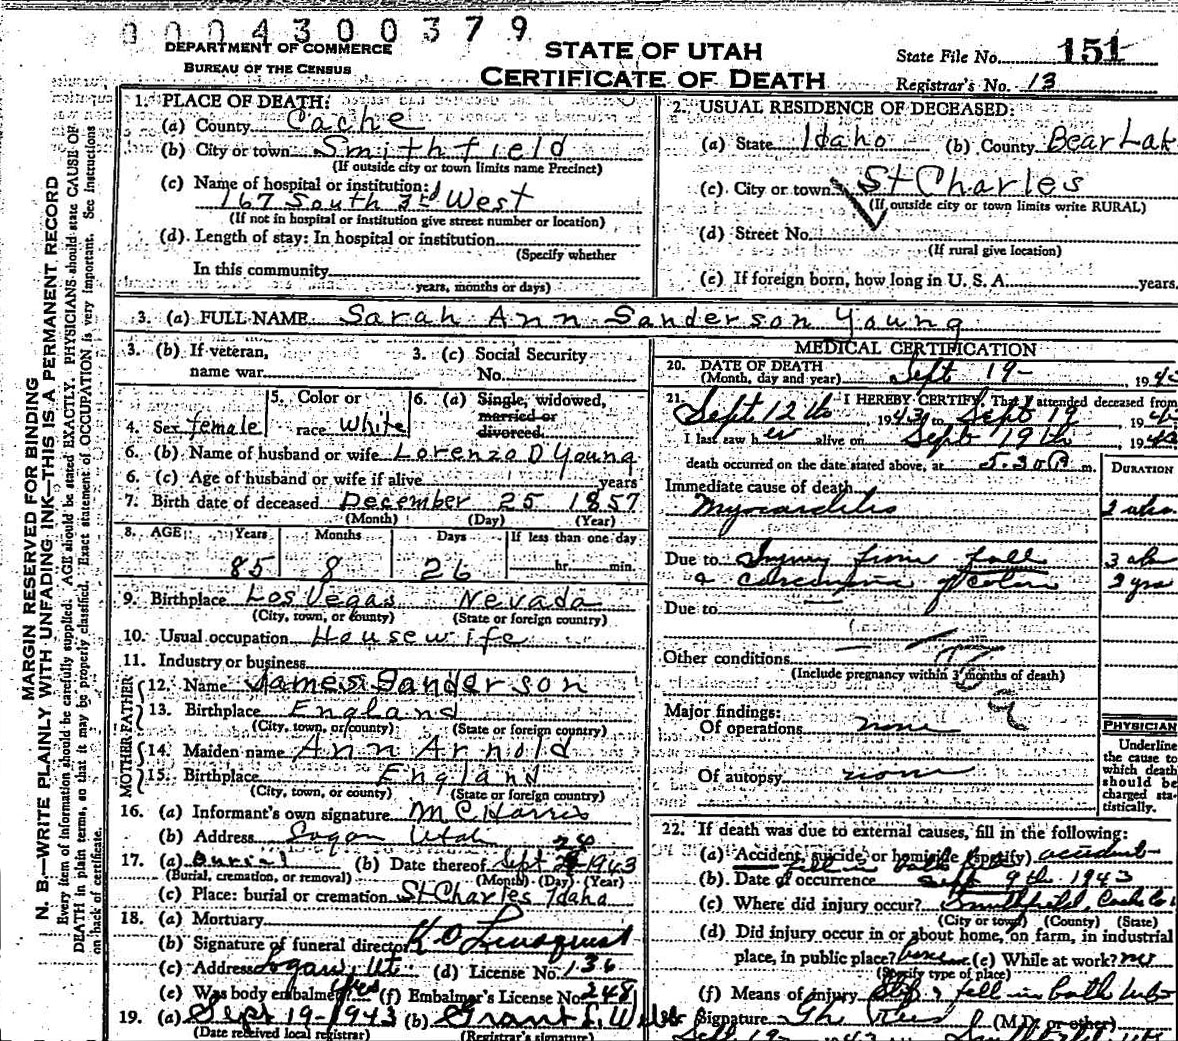 0004300379
DEPARTMENT OF COMMERCE
BUREAU OF THE CENSUS
STATE OF UTAH
CERTIFICATE OF DEATH
State File No. 151
Registrar's No. 13
MARGIN RESERVED FOR BINDING
N. B.—WRITE PLAINLY WITH UNFADING INK—THIS IS A PERMANENT RECORD
Every item of information should be carefully supplied. AGE should be stated EXACTLY. PHYSICIANS should state CAUSE OF
DEATH in plain terms, so that it may be properly classified. Exact statement of OCCUPATION is very important. See instructions
on back of certificate.
1. PLACE OF DEATH:
(a) County Cache
(b) City or town Smithfield
(If outside city or town limits name Precinct)
(c) Name of hospital or institution:
167 South 3rd West
(If not in hospital or institution give street number or location)
(d) Length of stay: In hospital or institution
(Specify whether
In this community
years, months or days)
2. USUAL RESIDENCE OF DECEASED:
(a) State Idaho (b) County Bear Lak
(c) City or town St Charles
(If outside city or town limits write RURAL)
(d) Street No.
(If rural give location)
(e) If foreign born, how long in U. S. A. years.
3. (a) FULL NAME Sarah Ann Sanderson Young
3. (b) If veteran,
name war
3. (c) Social Security
No.
4. Sex female
5. Color or
race White
6. (a) Single, widowed,
married or
divorced.
6. (b) Name of husband or wife Lorenzo D Young
6. (c) Age of husband or wife if alive years
7. Birth date of deceased December 25 1857
(Month) (Day) (Year)
8. AGE: Years Months Days If less than one day
85 8 26 hr. min.
9. Birthplace Los Vegas Nevada
(City, town, or county) (State or foreign country)
10. Usual occupation Housewife
11. Industry or business
FATHER
12. Name James Sanderson
13. Birthplace England
(City, town, or county) (State or foreign country)
MOTHER
14. Maiden name Ann Arnold
15. Birthplace England
(City, town, or county) (State or foreign country)
16. (a) Informant's own signature M C Harris
(b) Address Logan Utah
17. (a) Burial (b) Date thereof Sept 24 1943
(Burial, cremation, or removal) (Month) (Day) (Year)
(c) Place: burial or cremation St Charles Idaho
18. (a) Mortuary
(b) Signature of funeral director K. O. Lindquist
(c) Address Logan, Ut. (d) License No. 136
(e) Was body embalmed yes (f) Embalmer's License No. 248
19. (a) Sept 19-1943 (b) Grant S.
(Date received local registrar) (Registrar's signature)
MEDICAL CERTIFICATION
20. DATE OF DEATH
(Month, day and year) Sept 19- , 1943
21. I HEREBY CERTIFY, That I attended deceased from
Sept 12th 1943 to Sept 19 194
I last saw her alive on Sept 19th 1943
death occurred on the date stated above, at 5.30 P m.
DURATION
Immediate cause of death
Myocarditis 2 wks.
Due to Injury from fall
& carcinoma of colon 2 yrs
Due to
Other conditions
(Include pregnancy within 3 months of death)
Major findings:
Of operations none
Of autopsy none
PHYSICIAN
Underline
the cause to
which death
should be
charged sta-
tistically.
22. If death was due to external causes, fill in the following:
(a) Accident, suicide, or homicide (specify) accident
fell in bath tub
(b) Date of occurrence Sept 9th 1943
(c) Where did injury occur? Smithfield, Cache Co
(City or town) (County) (State)
(d) Did injury occur in or about home, on farm, in industrial
place, in public place? home (e) While at work? no
(Specify type of place)
(f) Means of injury Slip & fell in bath tub
Signature (M.D. or other)
Sept 19- 1943